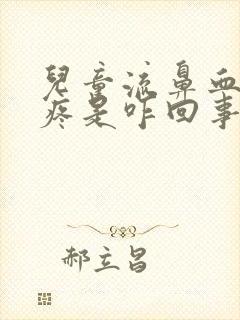 兒童流鼻血
疼是咋回事
郝立昌